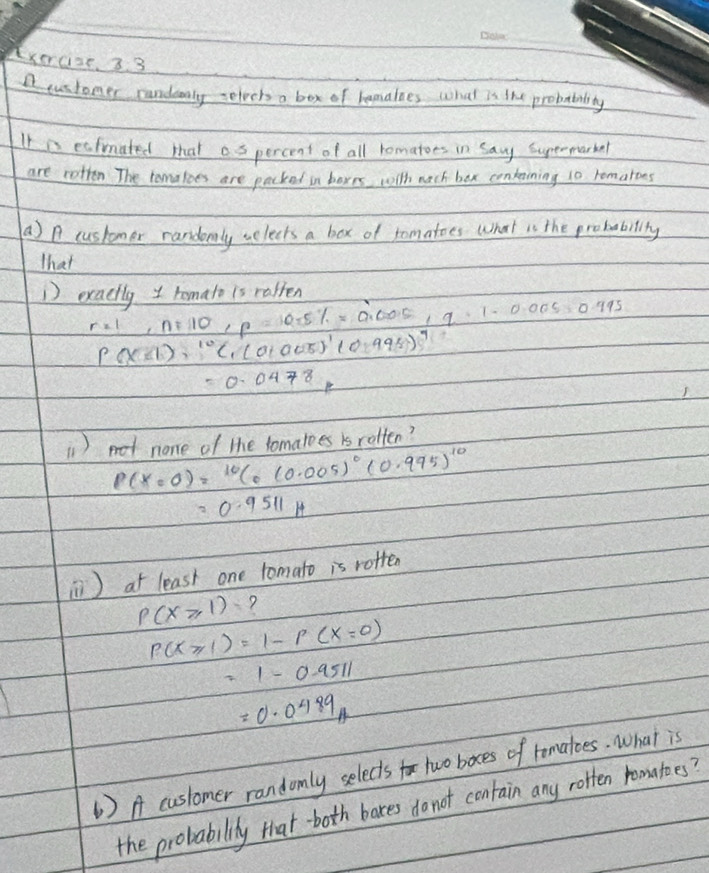 Exercise. 3.3
A customer randomly selects a box of tomatoes what is the probability
It is estimated that 0.5 percent of all tomatoes in Sauy Supermarket
are rotten The tomatoes are packed in boxes, with each box containing 10 tomatoes
a) A customer randomly selects a box of tomatoes what is the probability
that
i) exactly 1 tomato is rotten
r=1, n=10, p=0.5% = 0.005, q=1-0.005=0.995
P(X=1) = ¹⁰C₁(0.005)¹(0.995)⁹
= 0.0478
ii) not none of the tomatoes is rotten?
P(X=0) = ¹⁰C₀ (0.005)⁰ (0.995)¹⁰
= 0.9511
iii) at least one tomato is rotten
P(X⩾1) = ?
P(X⩾1) = 1 - P(X=0)
= 1 - 0.9511
= 0.0489
b) A customer randomly selects two boxes of tomatoes. What is
the probability that both boxes do not contain any rotten tomatoes?